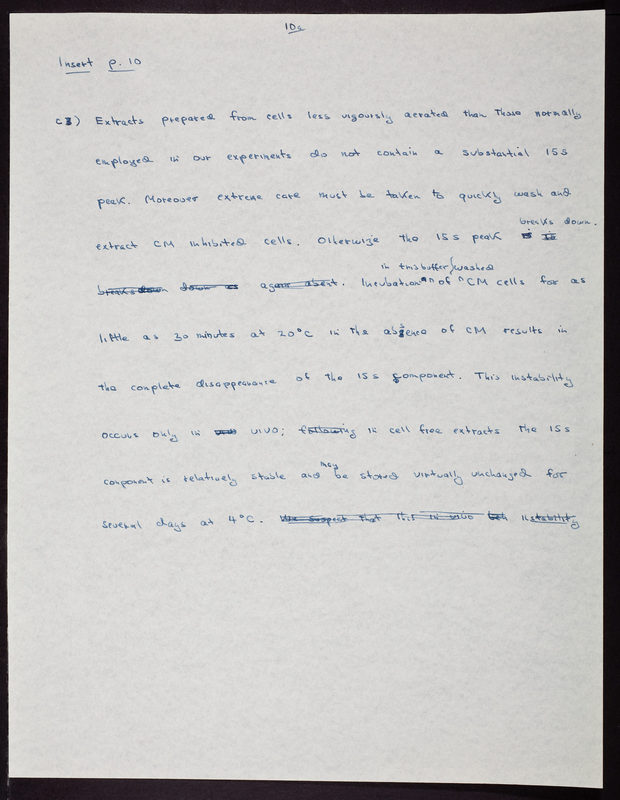 10a
Insert p. 10
C3) Extracts prepared from cells less vigoursly aerated than those normally
employed in our experiments do not contain a substantial 15s
peak. Moreover extreme care must be taken to quickly wash and
extract CM inhibited cells. Otherwize the 15s peak is breaks down.
breaks down down as again absent. Incubation in this buffer of washed CM cells for as
little as 30 minutes at 20°C in the absence of CM results in
the complete disappearance of the 15s component. This instability
occurs only in vivo vivo; following in cell free extracts the 15s
component is relatively stable and may be stored virtually unchanged for
several days at 4°C. We suspect that this in vivo instability